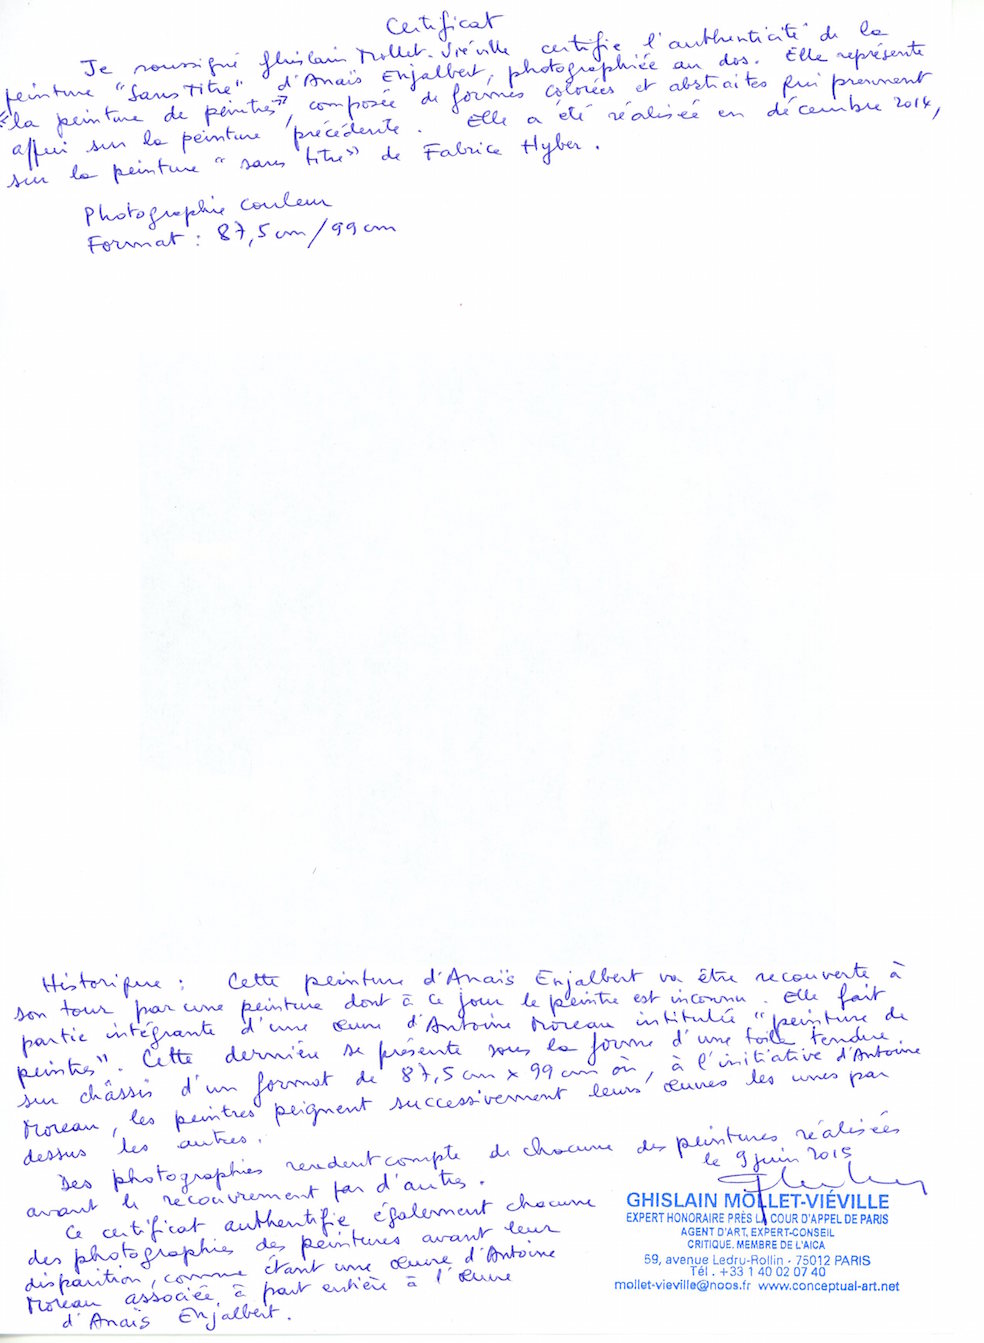 Certificat
Je soussigné Ghislain Mollet-Viéville certifie l'authenticité de la
peinture "Sans Titre" d'Anaïs Enjalbert, photographiée au dos. Elle représente
«la peinture de peintres», composée de formes colorées et abstraites qui prennent
appui sur la peinture précédente. Elle a été réalisée en décembre 2014,
sur la peinture "sans titre» de Fabrice Hyber.
Photographie couleur
Format : 87,5 cm/99 cm
Historique : Cette peinture d'Anaïs Enjalbert va être recouverte à
son tour par une peinture dont à ce jour le peintre est inconnu. Elle fait
partie intégrante d'une œuvre d'Antoine Moreau intitulée "peinture de
peintres". Cette dernière se présente sous la forme d'une toile tendue
sur châssis d'un format de 87,5 cm x 99 cm où, à l'initiative d'Antoine
Moreau, les peintres peignent successivement leurs œuvres les unes par
dessus les autres.
Des photographies rendent compte de chacune des peintures réalisées
avant le recouvrement par d'autres.
le 9 juin 2015
Ce certificat authentifie également chacune
des photographies des peintures avant leur
disparition, comme étant une œuvre d'Antoine
Moreau associée à part entière à l'œuvre
d'Anaïs Enjalbert.
GHISLAIN MOLLET-VIÉVILLE
EXPERT HONORAIRE PRÈS LA COUR D'APPEL DE PARIS
AGENT D'ART, EXPERT-CONSEIL
CRITIQUE. MEMBRE DE L'AICA
59, avenue Ledru-Rollin - 75012 PARIS
Tél. +33 1 40 02 07 40
mollet-vieville@noos.fr www.conceptual-art.net